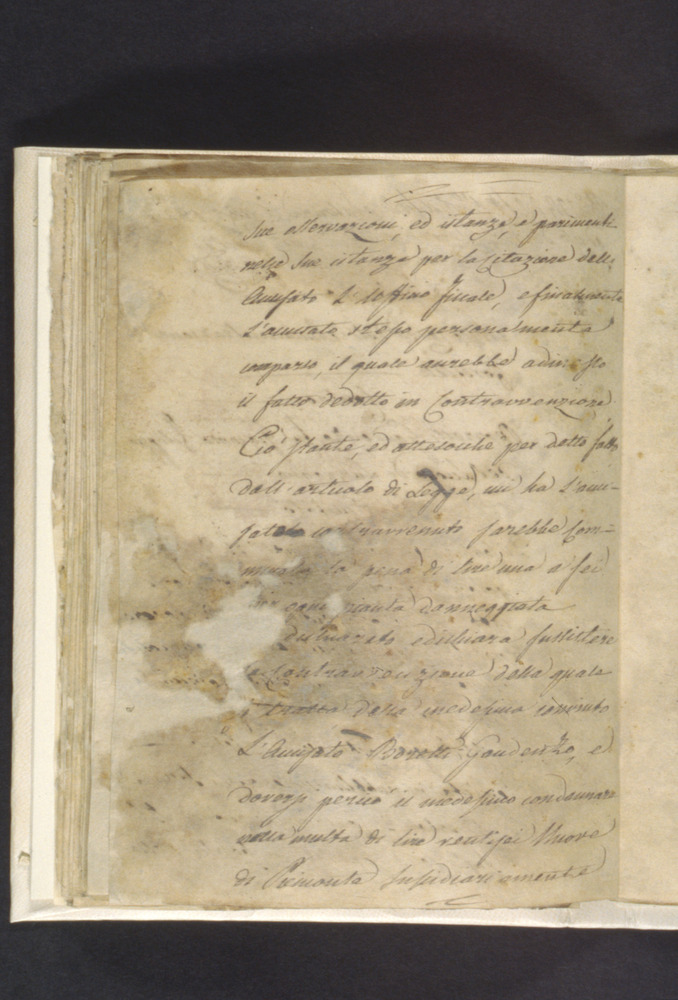 Sue osservazioni, ed istanze, e parimenti
nelle Sue istanze per la Citazione dell
Accusato L' Uffizio fiscale, e finalmente
L'accusato stesso personalmente
comparso, il quale aurebbe
il fatto dedotto in Contravvenzione
Ciò stante, ed attesocchè per detto fatto
dall'articolo di Legge, cui ha l'accu-
sato contravvenuto sarebbe Com-
minata la pena di lire una a sei
per ogni pianta danneggiata
dichiarato e dichiara sussistere
la Contravvenzione della quale
si tratta della medesima convinto
L'Accusato Gaudenzio, e
doversi perciò il medesimo condannare
nella multa di lire ventisei Nuove
di Piemonte Sussidiariamente